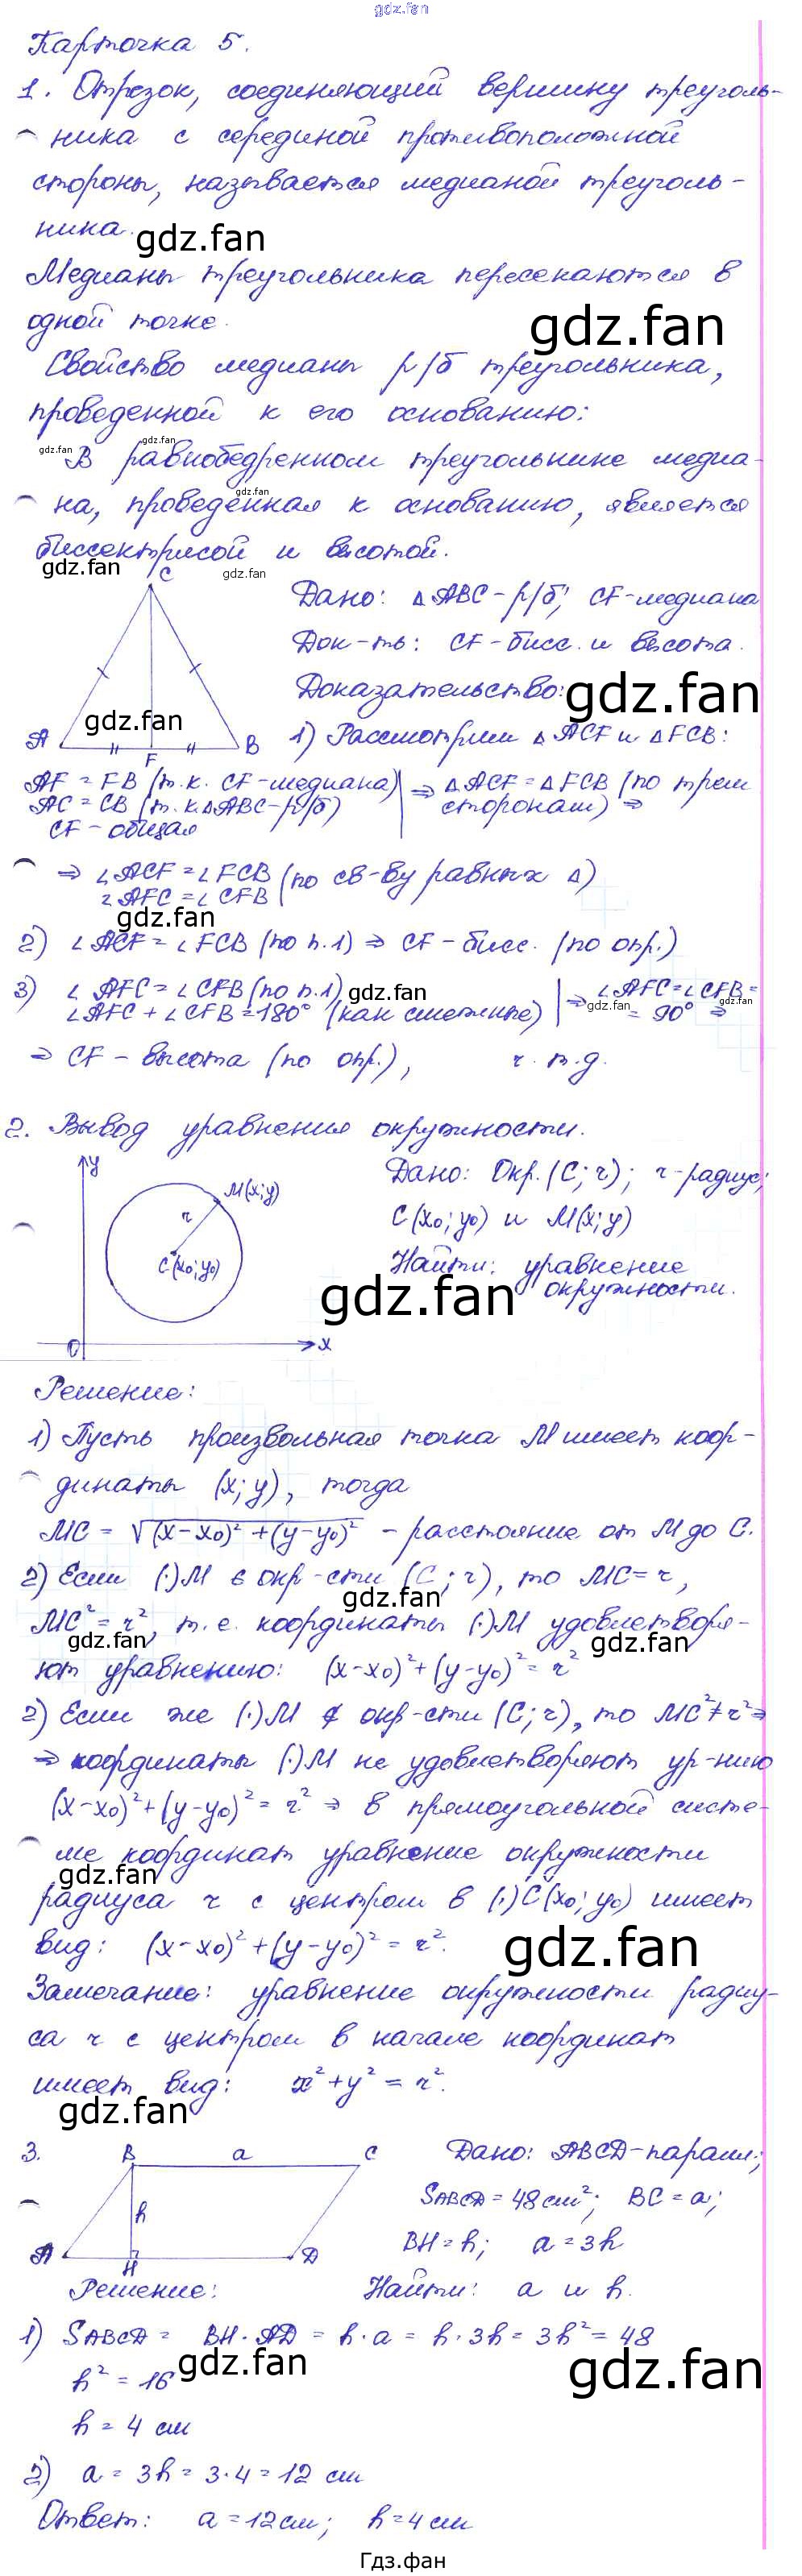 gdz.fan
Карточка 5.
1. Отрезок, соединяющий вершину треуголь-
ника с серединой противоположной
стороны, называется медианой треуголь-
ника.
gdz.fan
Медианы треугольника пересекаются в
одной точке.
gdz.fan
Свойство медианы р/б треугольника,
проведенной к его основанию:
gdz.fan
gdz.fan
В равнобедренном треугольнике медиа-
gdz.fan
на, проведённая к основанию, является
биссектрисой и высотой.
gdz.fan
gdz.fan
C
A F B
gdz.fan
Дано: △ABC - р/б; CF - медиана
Док-ть: CF - бисс. и высота.
Доказательство:
gdz.fan
1) Рассмотрим △ACF и △FCB:
AF = FB (т.к. CF - медиана)
AC = CB (т.к. △ABC - р/б)
CF - общая
⇒ △ACF = △FCB (по трем
сторонам) ⇒
⇒ ∠ACF = ∠FCB
∠AFC = ∠CFB
(по св-ву равных △)
gdz.fan
2) ∠ACF = ∠FCB (по п.1) ⇒ CF - бисс. (по опр.)
3) ∠AFC = ∠CFB (по п.1)
gdz.fan
∠AFC + ∠CFB = 180° (как смежные)
⇒ ∠AFC = ∠CFB =
= 90° ⇒
gdz.fan
gdz.fan
⇒ CF - высота (по опр.), ч.т.д.
2. Вывод уравнения окружности.
y
M(x;y)
r
C(x₀;y₀)
0 x
Дано: Окр.(C; r); r - радиус;
C(x₀; y₀) и M(x; y)
Найти: уравнение
окружности.
gdz.fan
Решение:
1) Пусть произвольная точка M имеет коор-
динаты (x; y), тогда
MC = √(x-x₀)² + (y-y₀)² - расстояние от M до C.
2) Если (·)M ∈ окр-сти (C; r), то MC = r,
gdz.fan
MC² = r², т.е. координаты (·)M удовлетворя-
gdz.fan
gdz.fan
ют уравнению: (x-x₀)² + (y-y₀)² = r²
2) Если же (·)M ∉ окр-сти (C; r), то MC² ≠ r² ⇒
⇒ координаты (·)M не удовлетворяют ур-нию
(x-x₀)² + (y-y₀)² = r² ⇒ в прямоугольной систе-
ме координат уравнение окружности
gdz.fan
радиуса r с центром в (·)C(x₀; y₀) имеет
вид: (x-x₀)² + (y-y₀)² = r².
gdz.fan
Замечание: уравнение окружности радиу-
са r с центром в начале координат
имеет вид: x² + y² = r².
gdz.fan
3.
B a C
h
A H D
Дано: ABCD - паралл;
SABCD = 48 см²; BC = a;
BH = h; a = 3h
Решение: Найти: a и h.
1) SABCD = BH · AD = h · a = h · 3h = 3h² = 48
gdz.fan
gdz.fan
h² = 16
h = 4 см
2) a = 3h = 3·4 = 12 см
Ответ: a = 12 см; h = 4 см
Гдз.фан